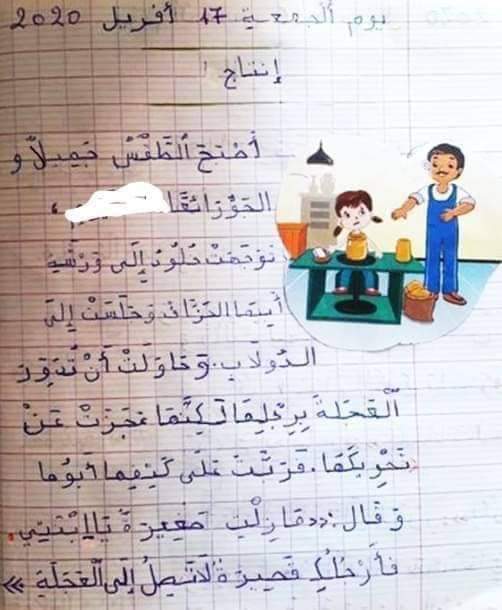 يوم الجمعة 17 أفريل 2020
إنتاج
أَصْبَحَ الطَّقْسُ جَمِيلاً و
الجَوُّ رَائِقًا
تَوَجَّهَتْ خُلُودُ إِلَى وَرْشَةِ
أَبِيهَا الخَزَّافِ وَجَلَسَتْ إِلَى
الدُولَابِ. وَحَاوَلَتْ أَنْ تُدَوِّرَ
الْعَجَلَةَ بِرِجْلِهَا لَكِنَّهَا عَجَزَتْ عَنْ
تَحْرِيكِهَا. فَرَبَّتَ عَلَى كَتِفِهَا أَبُوهَا
وَقَال: «مَا زِلْتِ صَغِيرَةً يَا ابْنَتِي.
فَأَرْجُلُكِ قَصِيرَةٌ لَا تَصِلُ إِلَى الْعَجَلَةِ»